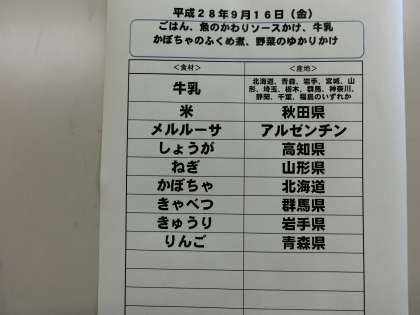 平成28年9月16日(金)
ごはん、魚のかわりソースかけ、牛乳
かぼちゃのふくめ煮、野菜のゆかりかけ
<食材> <産地>
牛乳 北海道、青森、岩手、宮城、山
形、埼玉、栃木、群馬、神奈川、
静岡、千葉、福島のいずれか
米 秋田県
メルルーサ アルゼンチン
しょうが 高知県
ねぎ 山形県
かぼちゃ 北海道
きゃべつ 群馬県
きゅうり 岩手県
りんご 青森県